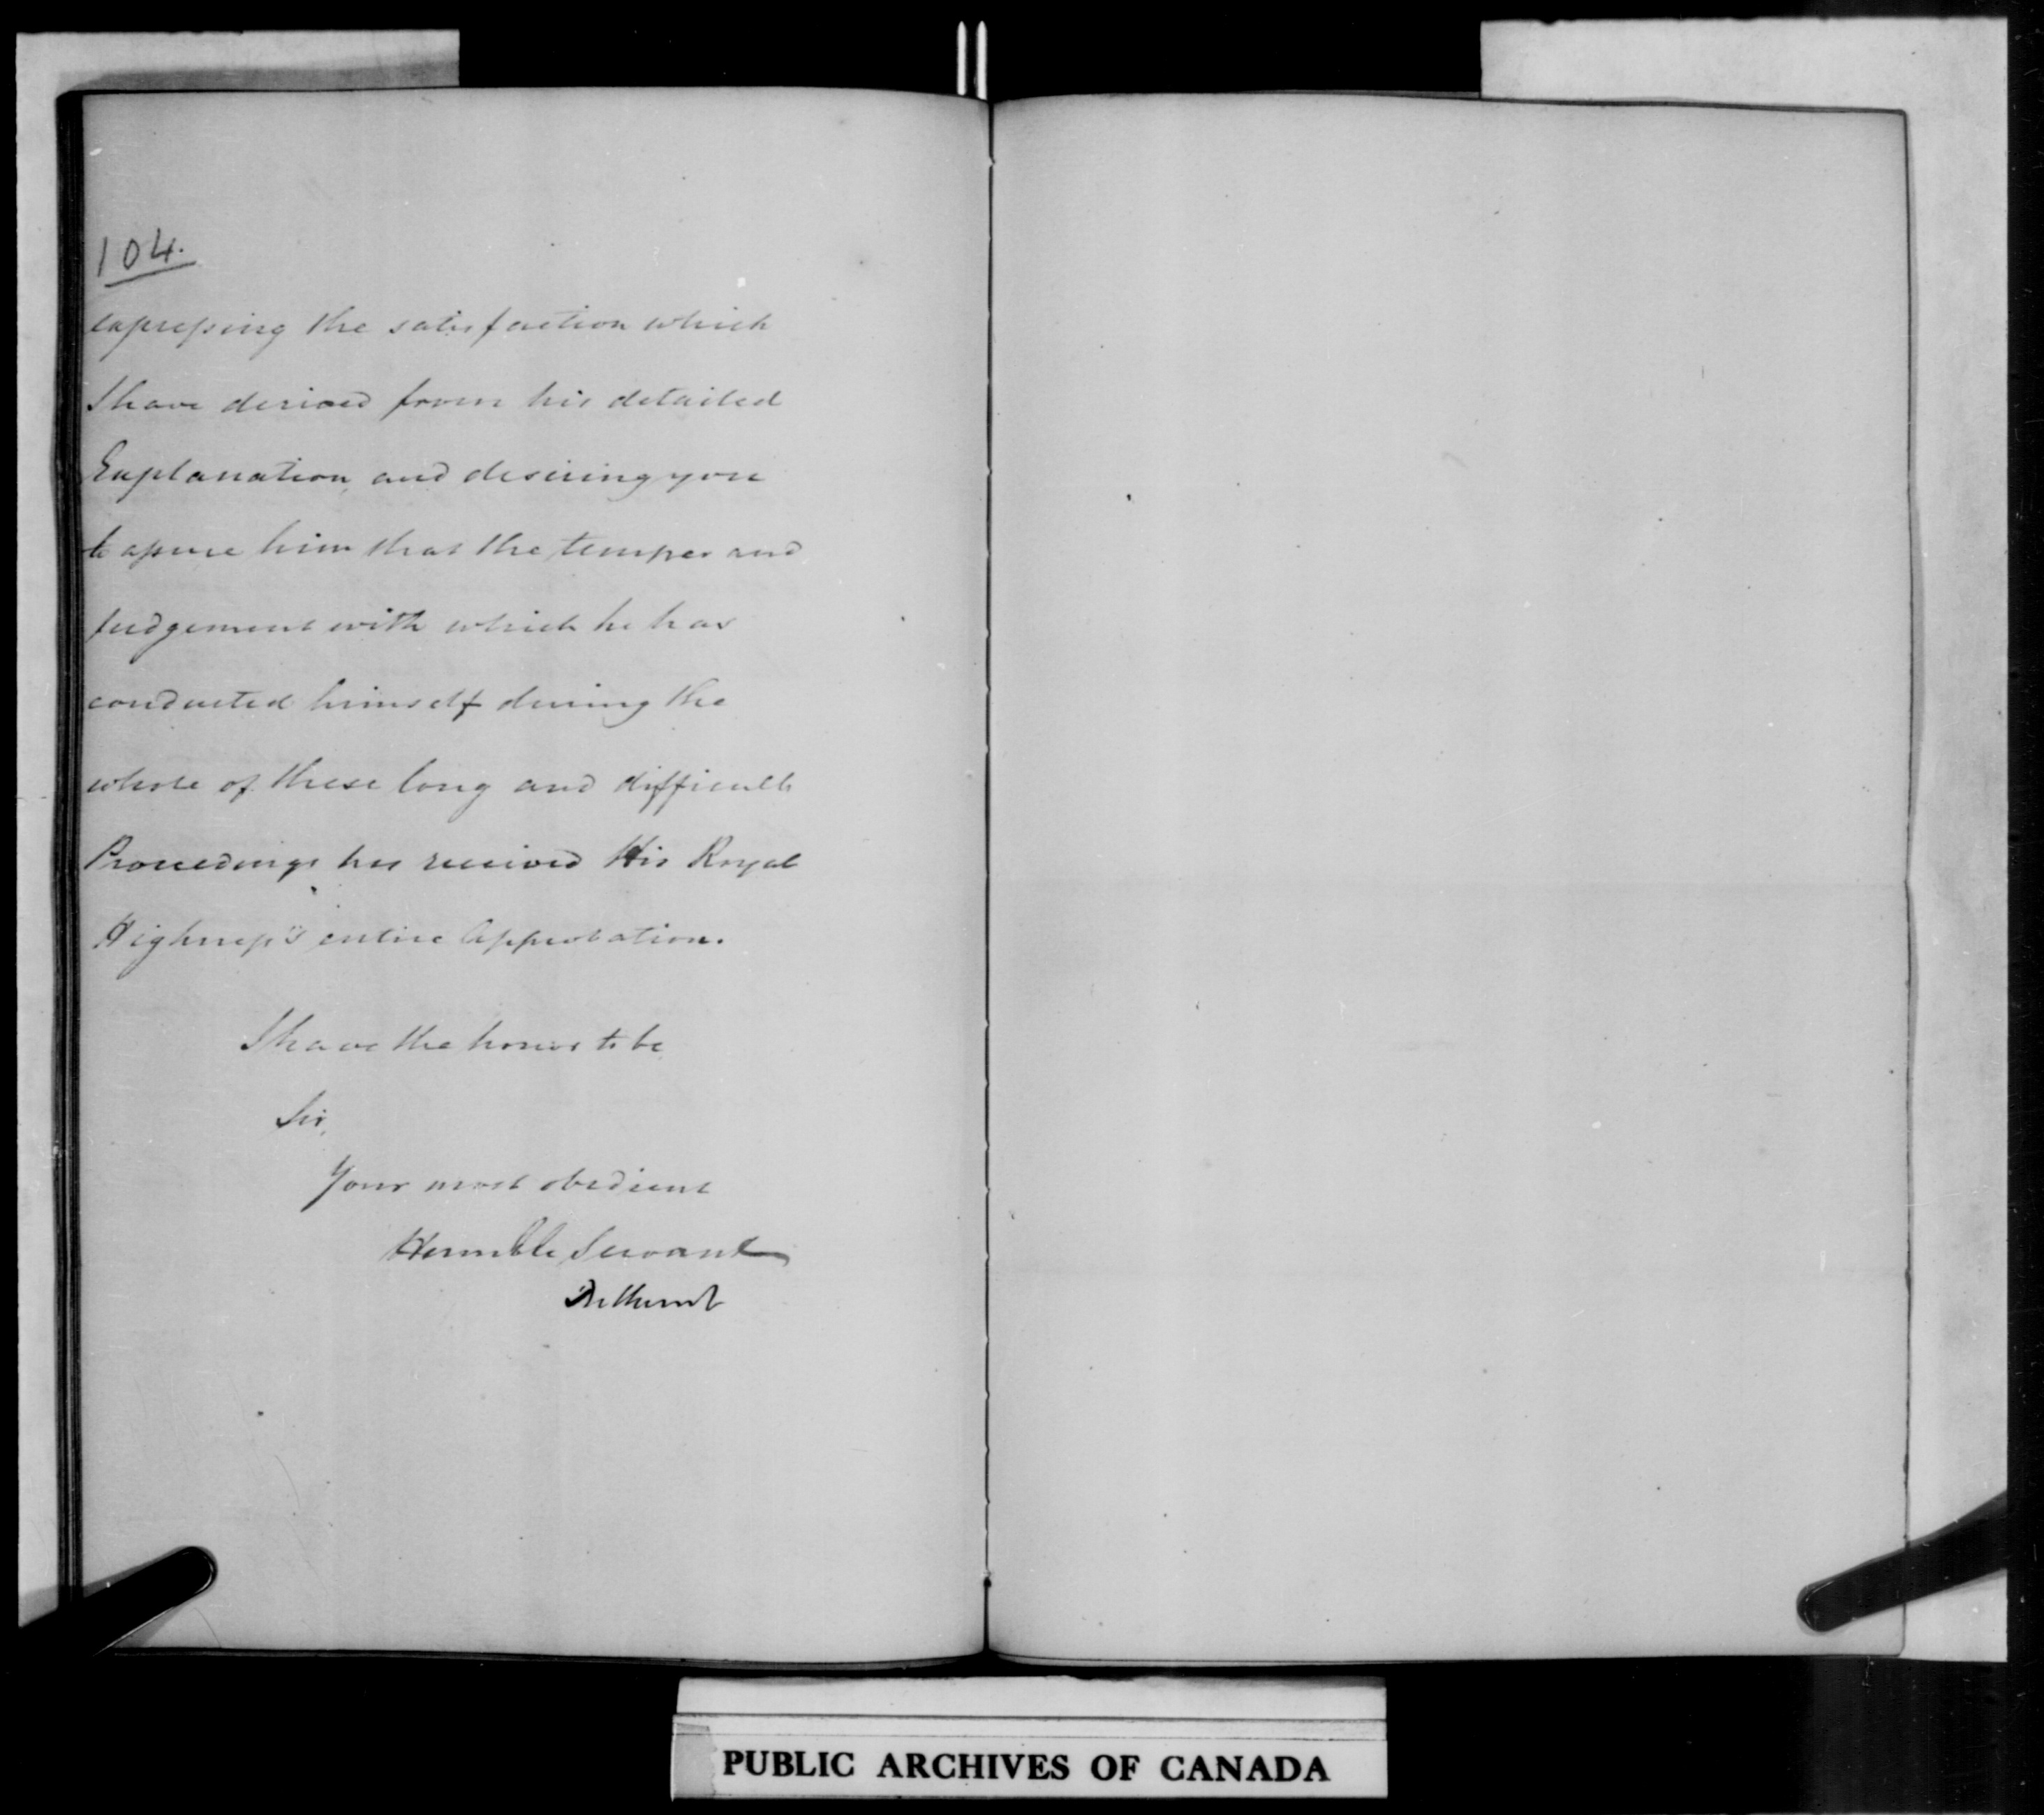 104.
expressing the satisfaction which
I have derived from his detailed
Explanation, and desiring you
to assure him that the temper and
judgement with which he has
conducted himself during the
whole of these long and difficult
Proceedings has received His Royal
Highness's entire Approbation.
I have the honor to be
Sir,
Your most obedient
Humble Servant
Bathurst
PUBLIC ARCHIVES OF CANADA